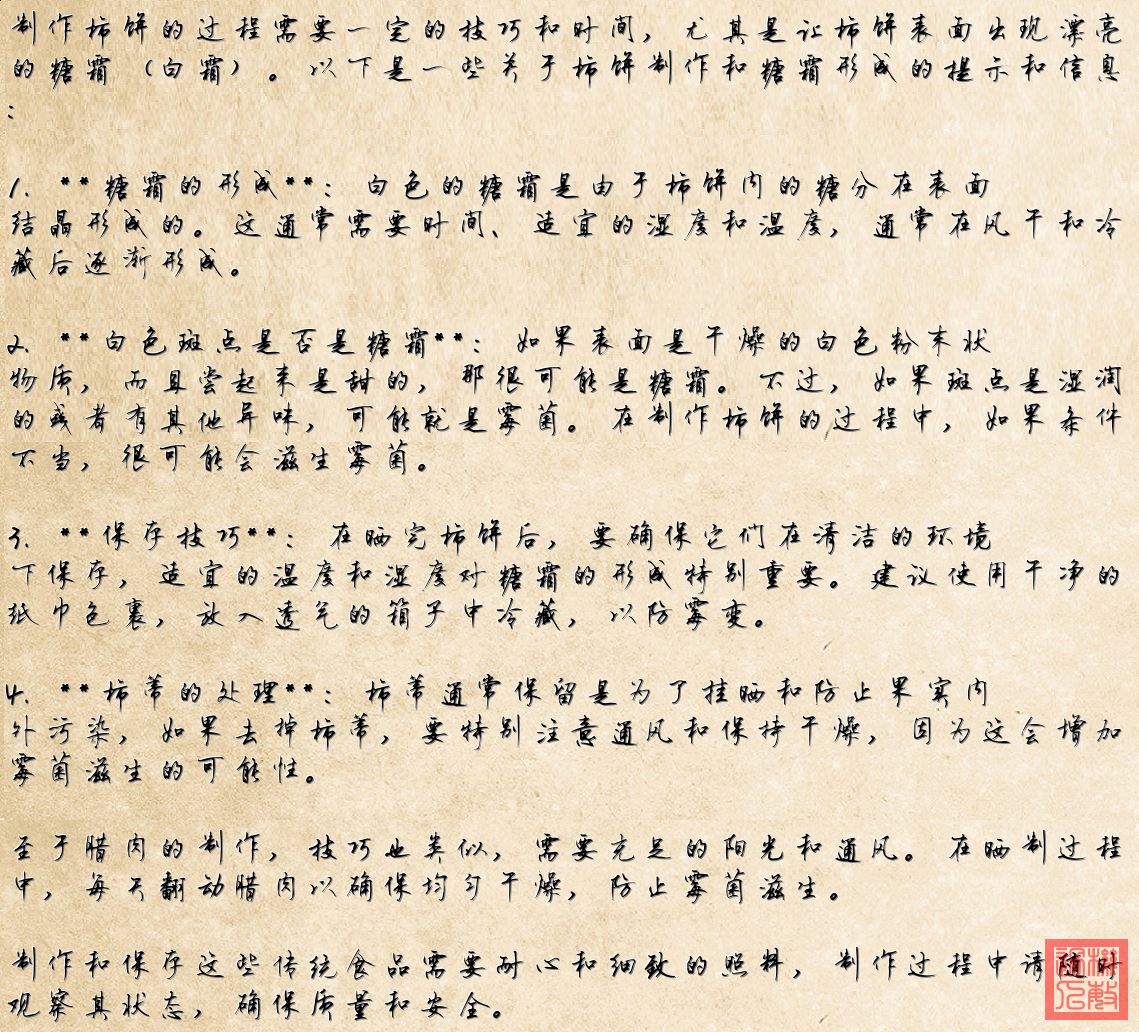 制作柿饼的过程需要一定的技巧和时间，尤其是让柿饼表面出现漂亮
的糖霜（白霜）。以下是一些关于柿饼制作和糖霜形成的提示和信息
：
1. **糖霜的形成**：白色的糖霜是由于柿饼内的糖分在表面
结晶形成的。这通常需要时间、适宜的湿度和温度，通常在风干和冷
藏后逐渐形成。
2. **白色斑点是否是糖霜**：如果表面是干燥的白色粉末状
物质，而且尝起来是甜的，那很可能是糖霜。不过，如果斑点是湿润
的或者有其他异味，可能就是霉菌。在制作柿饼的过程中，如果条件
不当，很可能会滋生霉菌。
3. **保存技巧**：在晒完柿饼后，要确保它们在清洁的环境
下保存，适宜的温度和湿度对糖霜的形成特别重要。建议使用干净的
纸巾包裹，放入透气的箱子中冷藏，以防霉变。
4. **柿蒂的处理**：柿蒂通常保留是为了挂晒和防止果实内
外污染，如果去掉柿蒂，要特别注意通风和保持干燥，因为这会增加
霉菌滋生的可能性。
至于腊肉的制作，技巧也类似，需要充足的阳光和通风。在晒制过程
中，每天翻动腊肉以确保均匀干燥，防止霉菌滋生。
制作和保存这些传统食品需要耐心和细致的照料，制作过程中请随时
观察其状态，确保质量和安全。